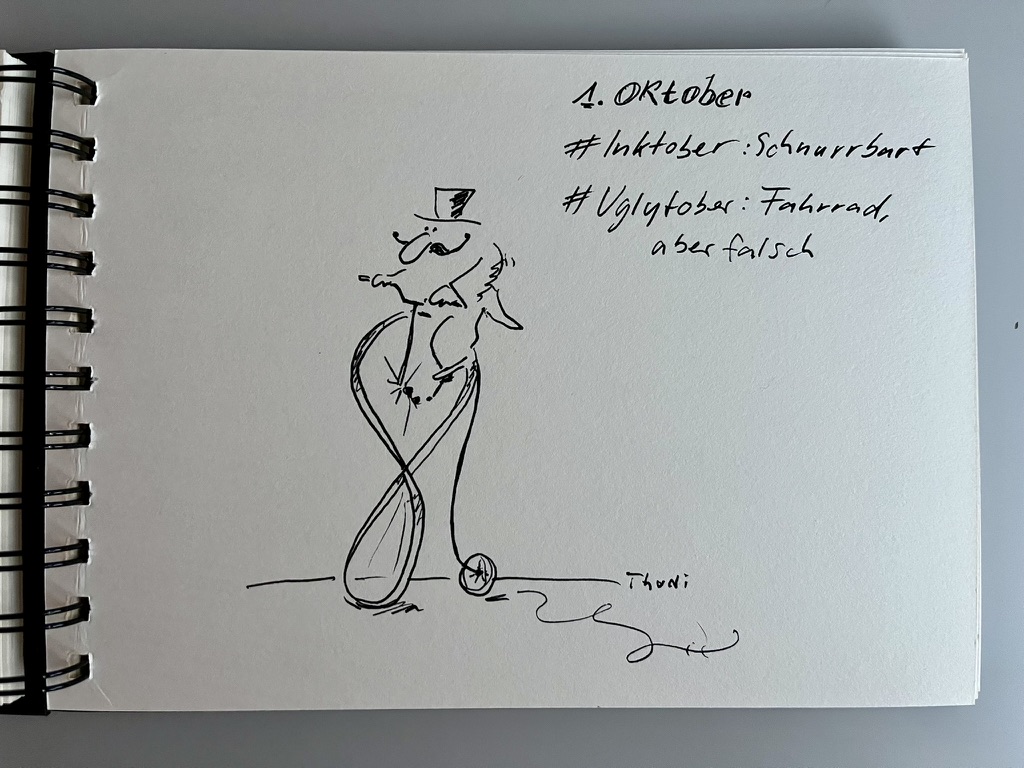 1. Oktober
#Inktober: Schnurrbart
#Uglytober: Fahrrad,
aber falsch